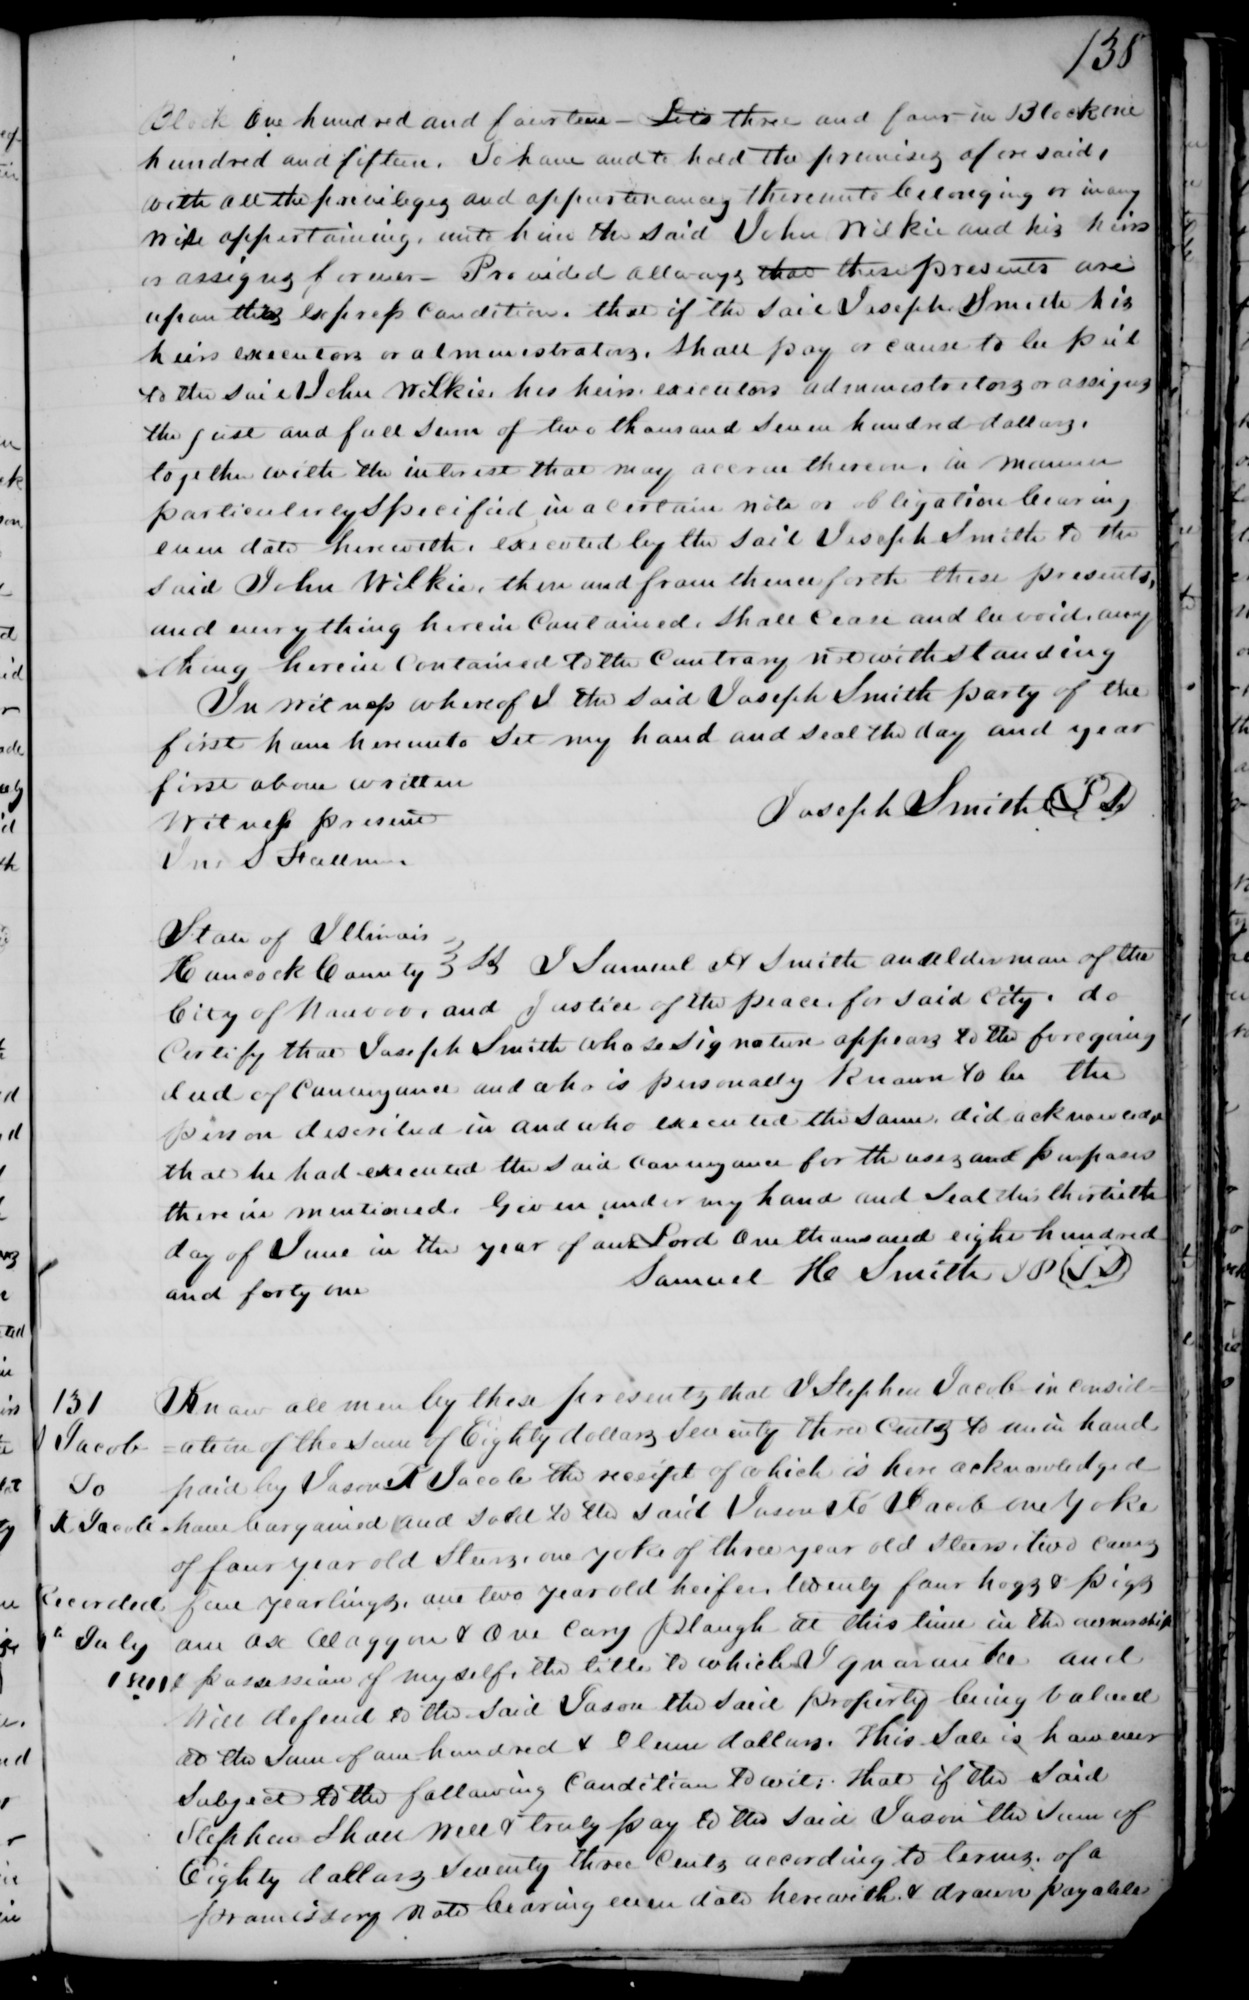 138
Block One hundred and fourteen - Lots three and four in Block one
hundred and fifteen. To have and to hold the premises aforesaid,
with all the privileges and appurtenances thereunto belonging or in any
wise appertaining, unto him the said John Wilkie and his heirs
or assigns forever - Provided allways that these presents are
upon this express condition. that if the said Joseph Smith his
heirs executors or administrators, shall pay or cause to be paid
to the said John Wilkie, his heirs, executors administrators or assigns
the just and full sum of two thousand seven hundred dollars,
together with the interest that may accrue thereon, in manner
particularly specified in a certain note or obligation bearing
even date herewith, executed by the said Joseph Smith to the
said John Wilkie, then and from thenceforth these presents,
and everything herein contained, shall cease and be void, any
thing herein contained to the contrary notwithstanding
In witness whereof I the said Joseph Smith party of the
first have hereunto set my hand and seal the day and year
first above written
Joseph Smith (L S)
Witness present
Jno S Fullmer
State of Illinois
Hancock County SS I Samuel H Smith an alderman of the
City of Nauvoo, and Justice of the peace, for said City, do
Certify that Joseph Smith whose signature appears to the foregoing
deed of conveyance and who is personally known to be the
person described in and who executed the same, did acknowledge
that he had executed the said conveyance for the uses and purposes
therein mentioned. Given under my hand and seal this thirtieth
day of June in the year of our Lord One thousand eight hundred
and forty one
Samuel H Smith JP (L S)
131
Jacob
To
K Jacob
Recorded
July
1841
Know all men by these presents that I Stephen Jacob in consid=
=ation of the sum of Eighty dollars seventy three cents to me in hand
paid by Jason K Jacob the receipt of which is here acknowledged
have bargained and sold to the said Jason K Jacob one Yoke
of four year old steers, one yoke of three year old steers, two cows
five yearlings, one two year old heifer, twenty four hogs & pigs
one ox Waggon & One Cary plough at this time in the ownership
& possession of myself, the title to which I guarantee and
will defend to the said Jason the said property being valued
at the sum of one hundred & Eleven dollars. This sale is however
subject to the following condition to wit; that if the said
Stephen shall well & truly pay to the said Jason the sum of
Eighty dollars seventy three cents according to terms of a
promissory note bearing even date herewith & drawn payable